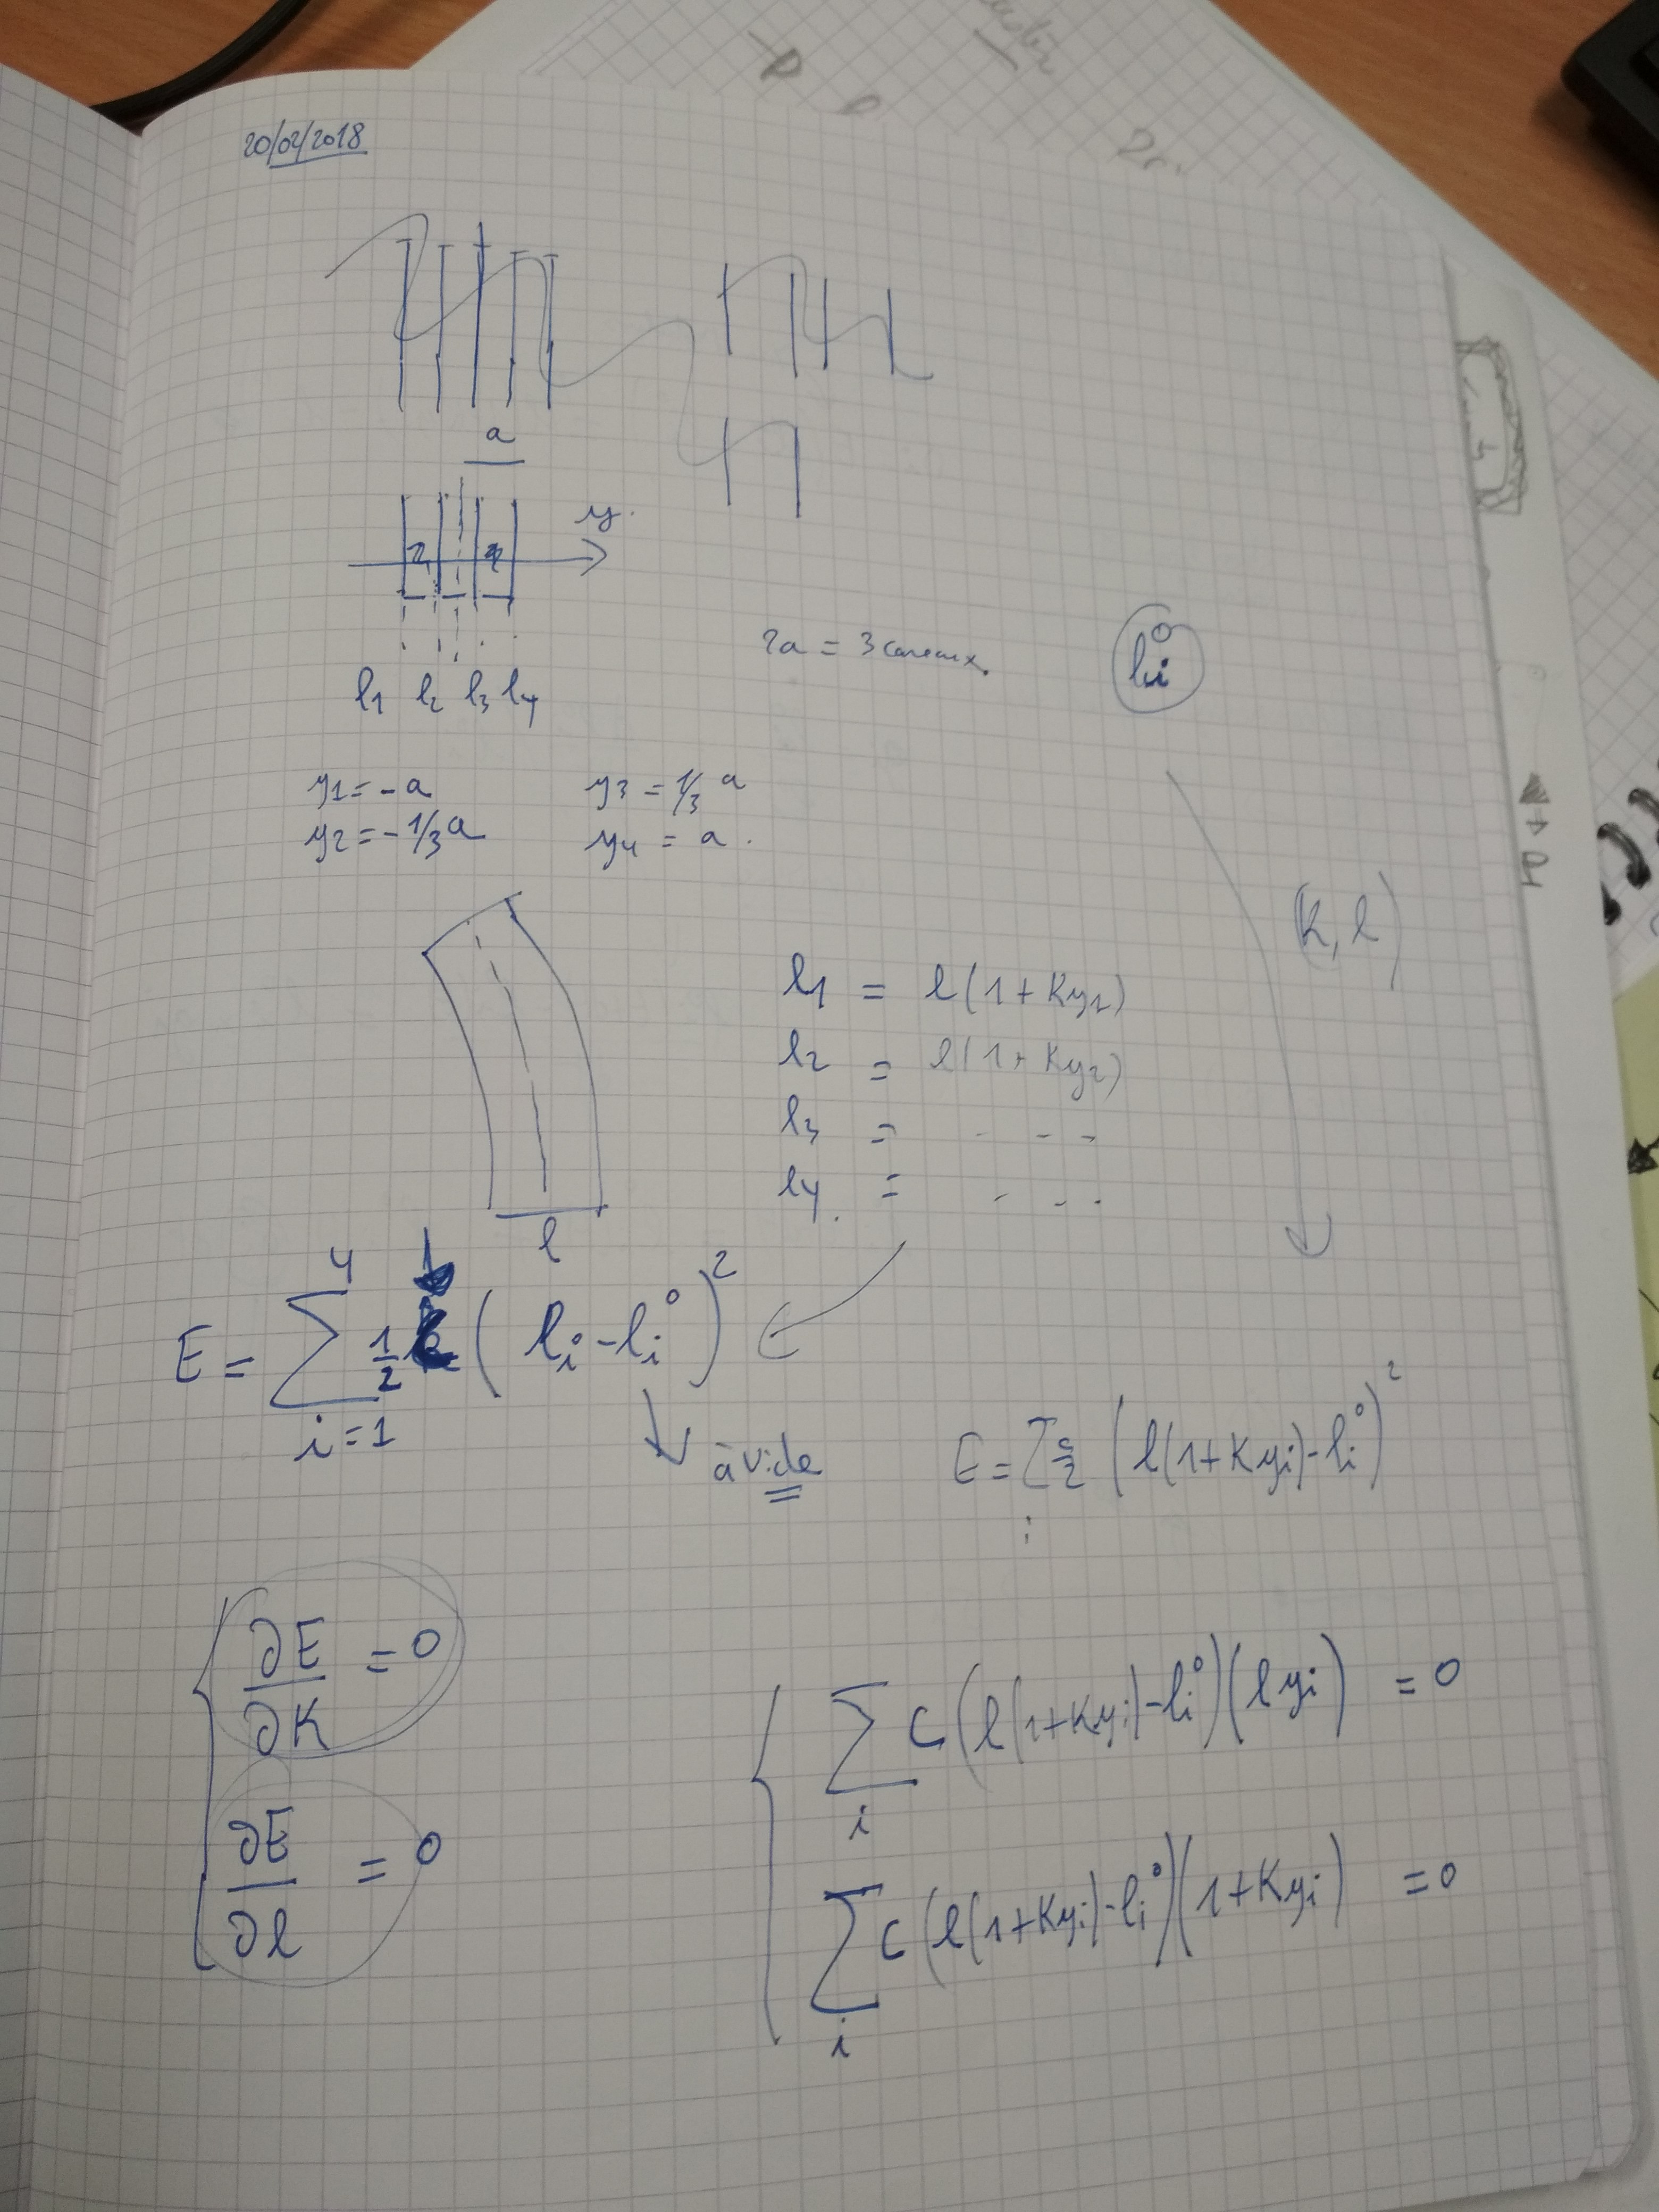 20/02/2018
a
y.
l1 l2 l3 l4
2a = 3 careaux.
li°
y1 = -a
y3 = 1/3 a
y2 = -1/3 a
y4 = a.
(K, l)
l1 = l(1+Ky1)
l2 = l(1+Ky2)
l3 = - - -
l4. = - - -
l
E = ∑_{i=1}^{4} 1/2 k (li - li°)²
à vide
E = ∑_i c/2 (l(1+Kyi) - li°)²
∂E/∂K = 0
∑_i C (l(1+Kyi) - li°)(l yi) = 0
∂E/∂l = 0
∑_i C (l(1+Kyi) - li°)(1+Kyi) = 0